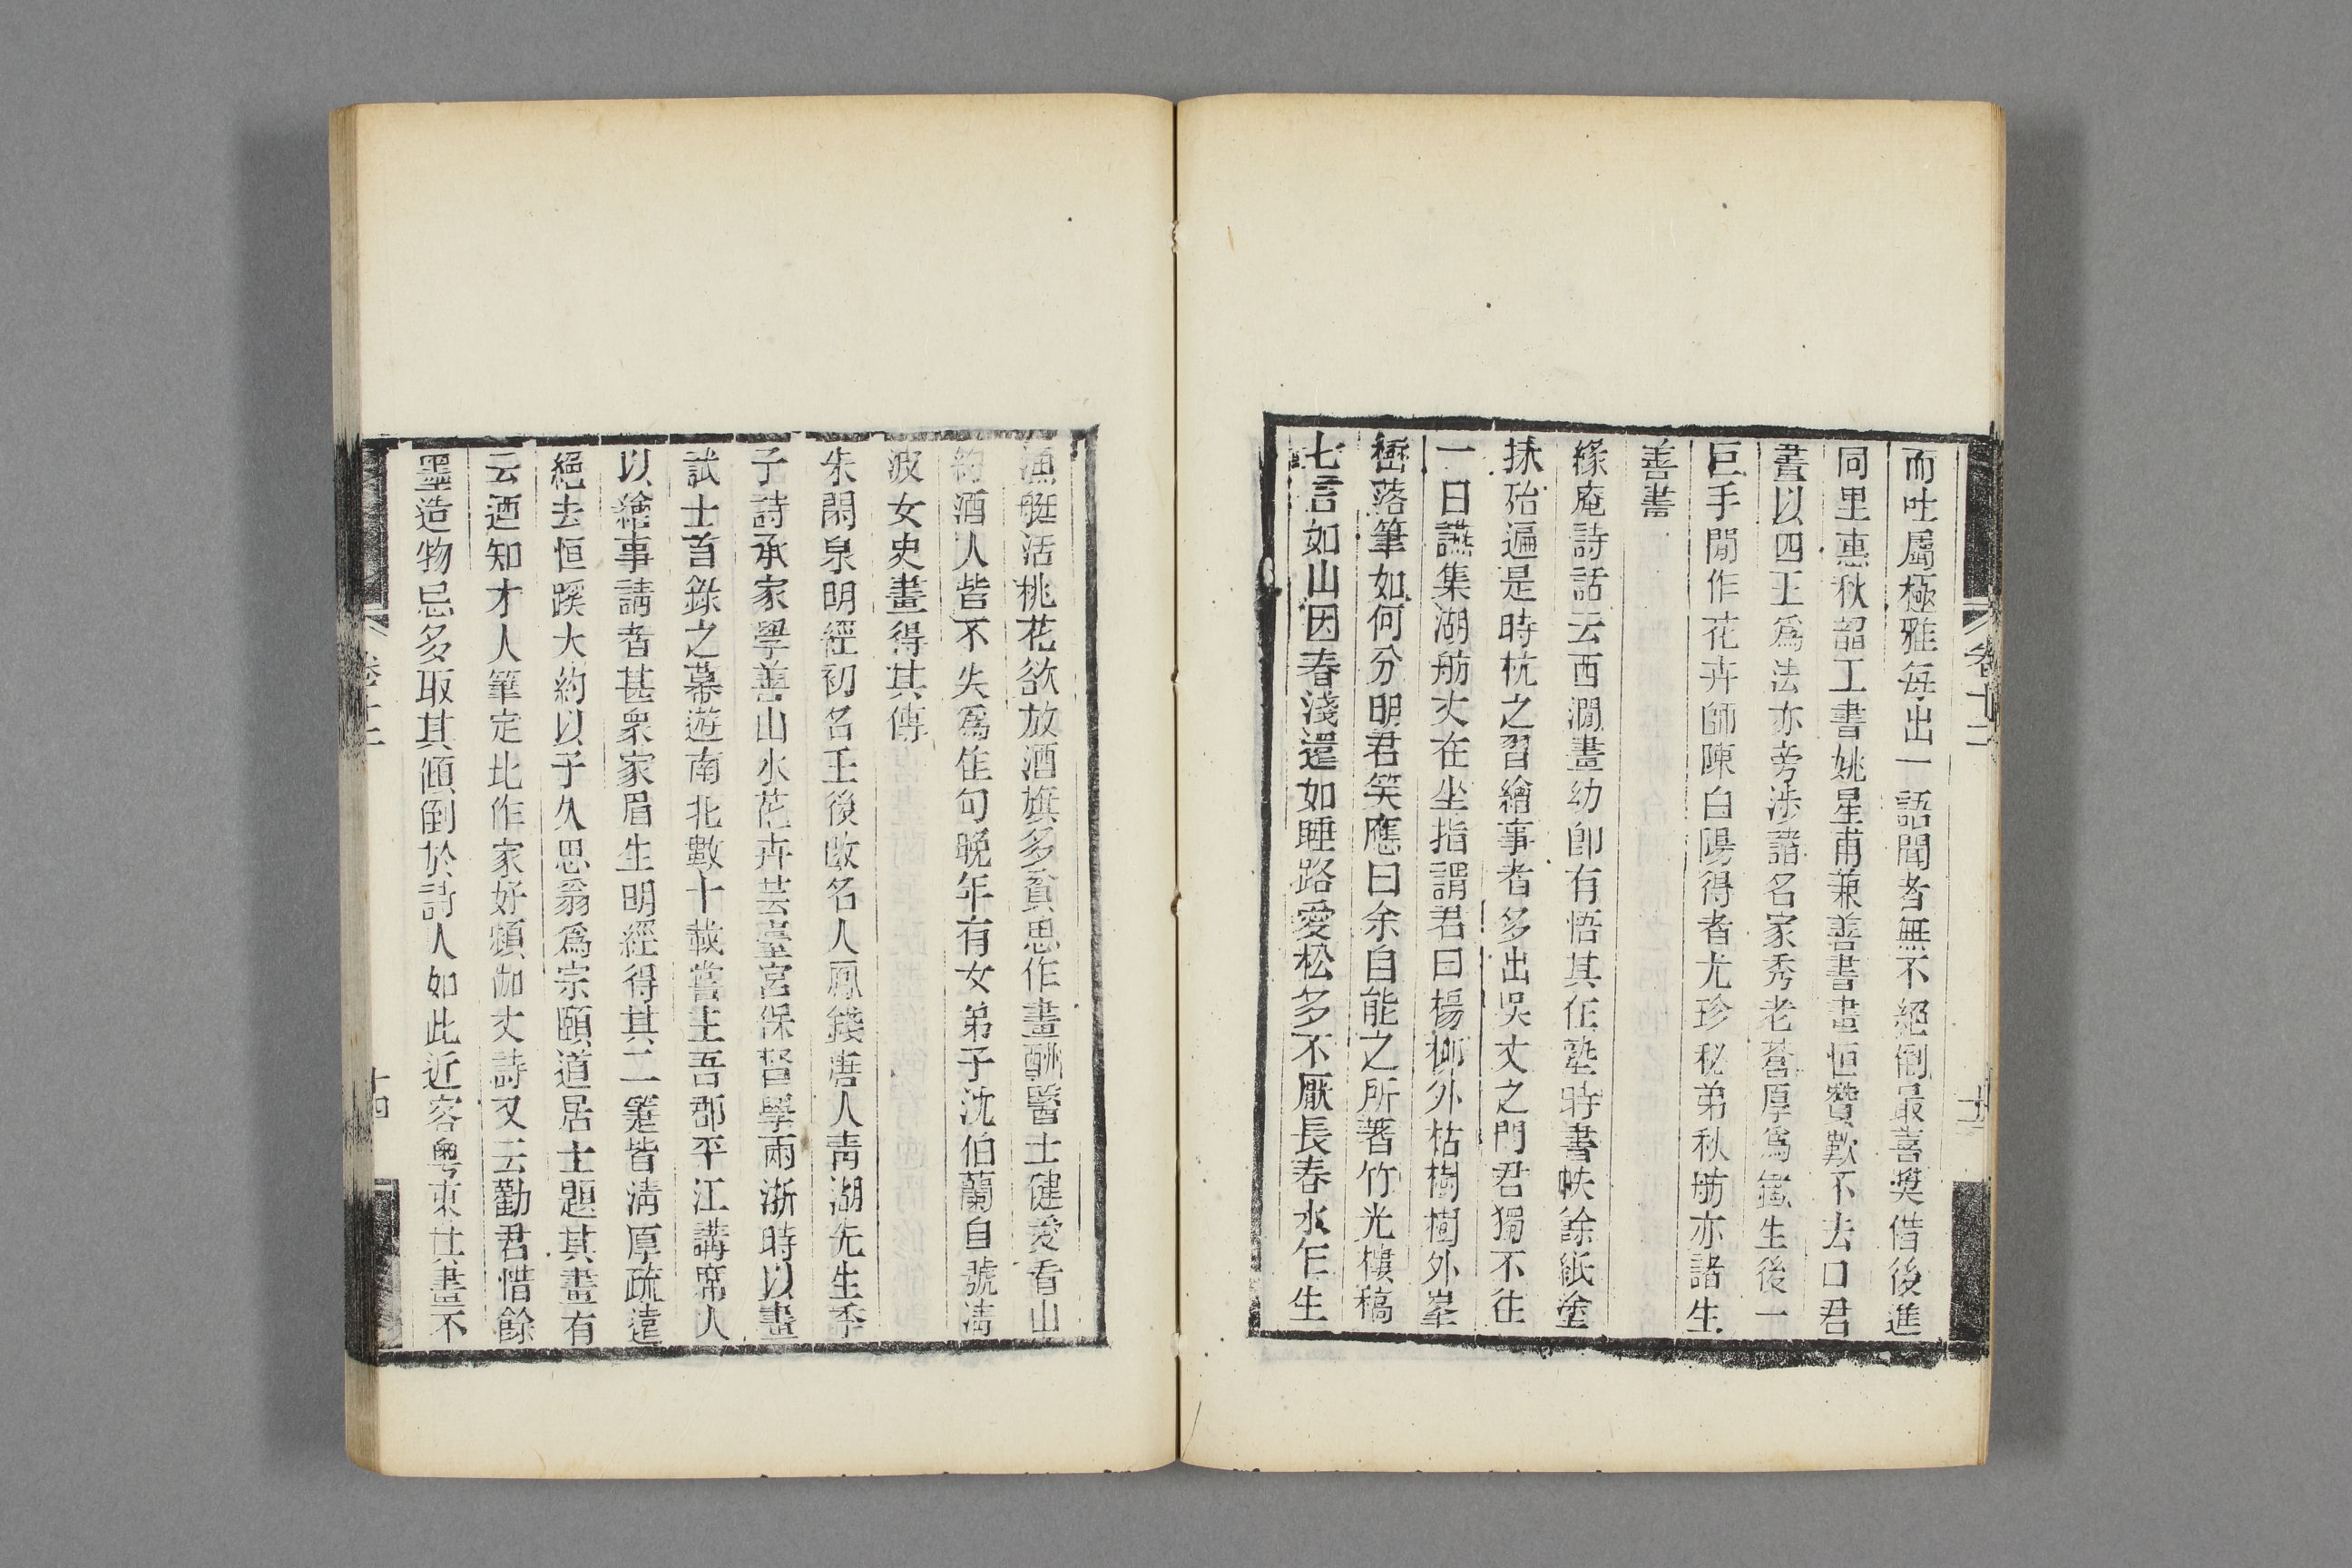 而吐屬極雅每出一語聞者無不絕倒最善奬借後進
同里惠秋韶工書姚星甫兼善書畫恒贊歎不去口君
畫以四王爲法亦旁涉諸名家秀老蒼厚爲鐵生後一
巨手閒作花卉師陳白陽得者尤珍秘弟秋舫亦諸生
善書
緣庵詩話云西澗畫幼卽有悟其在塾時書帙餘紙塗
抹殆遍是時杭之習繪事者多出吳丈之門君獨不往
一日讌集湖舫丈在坐指謂君曰楊柳外枯樹樹外峯
巒落筆如何分明君笑應曰余自能之所著竹光樓稿
七言如山因春淺還如睡路愛松多不厭長春水乍生
漁艇活桃花欲放酒旗多貧思作畫酬醫士健愛看山
約酒人皆不失爲佳句晚年有女弟子沈伯蘭自號淸
波女史畫得其傳
朱閑泉明經初名壬後改名人鳳錢唐人靑湖先生季
子詩承家學善山水花卉芸臺宮保督學兩浙時以畫
試士首錄之幕遊南北數十載嘗主吾郡平江講席人
以繪事請者甚衆家眉生明經得其二箑皆淸厚疏遠
絕去恒蹊大約以子久思翁爲宗頤道居士題其畫有
云迺知才人筆定比作家好頻伽丈詩又云勸君惜餘
墨造物忌多取其傾倒於詩人如此近客粵東其畫不
卷十二
十四